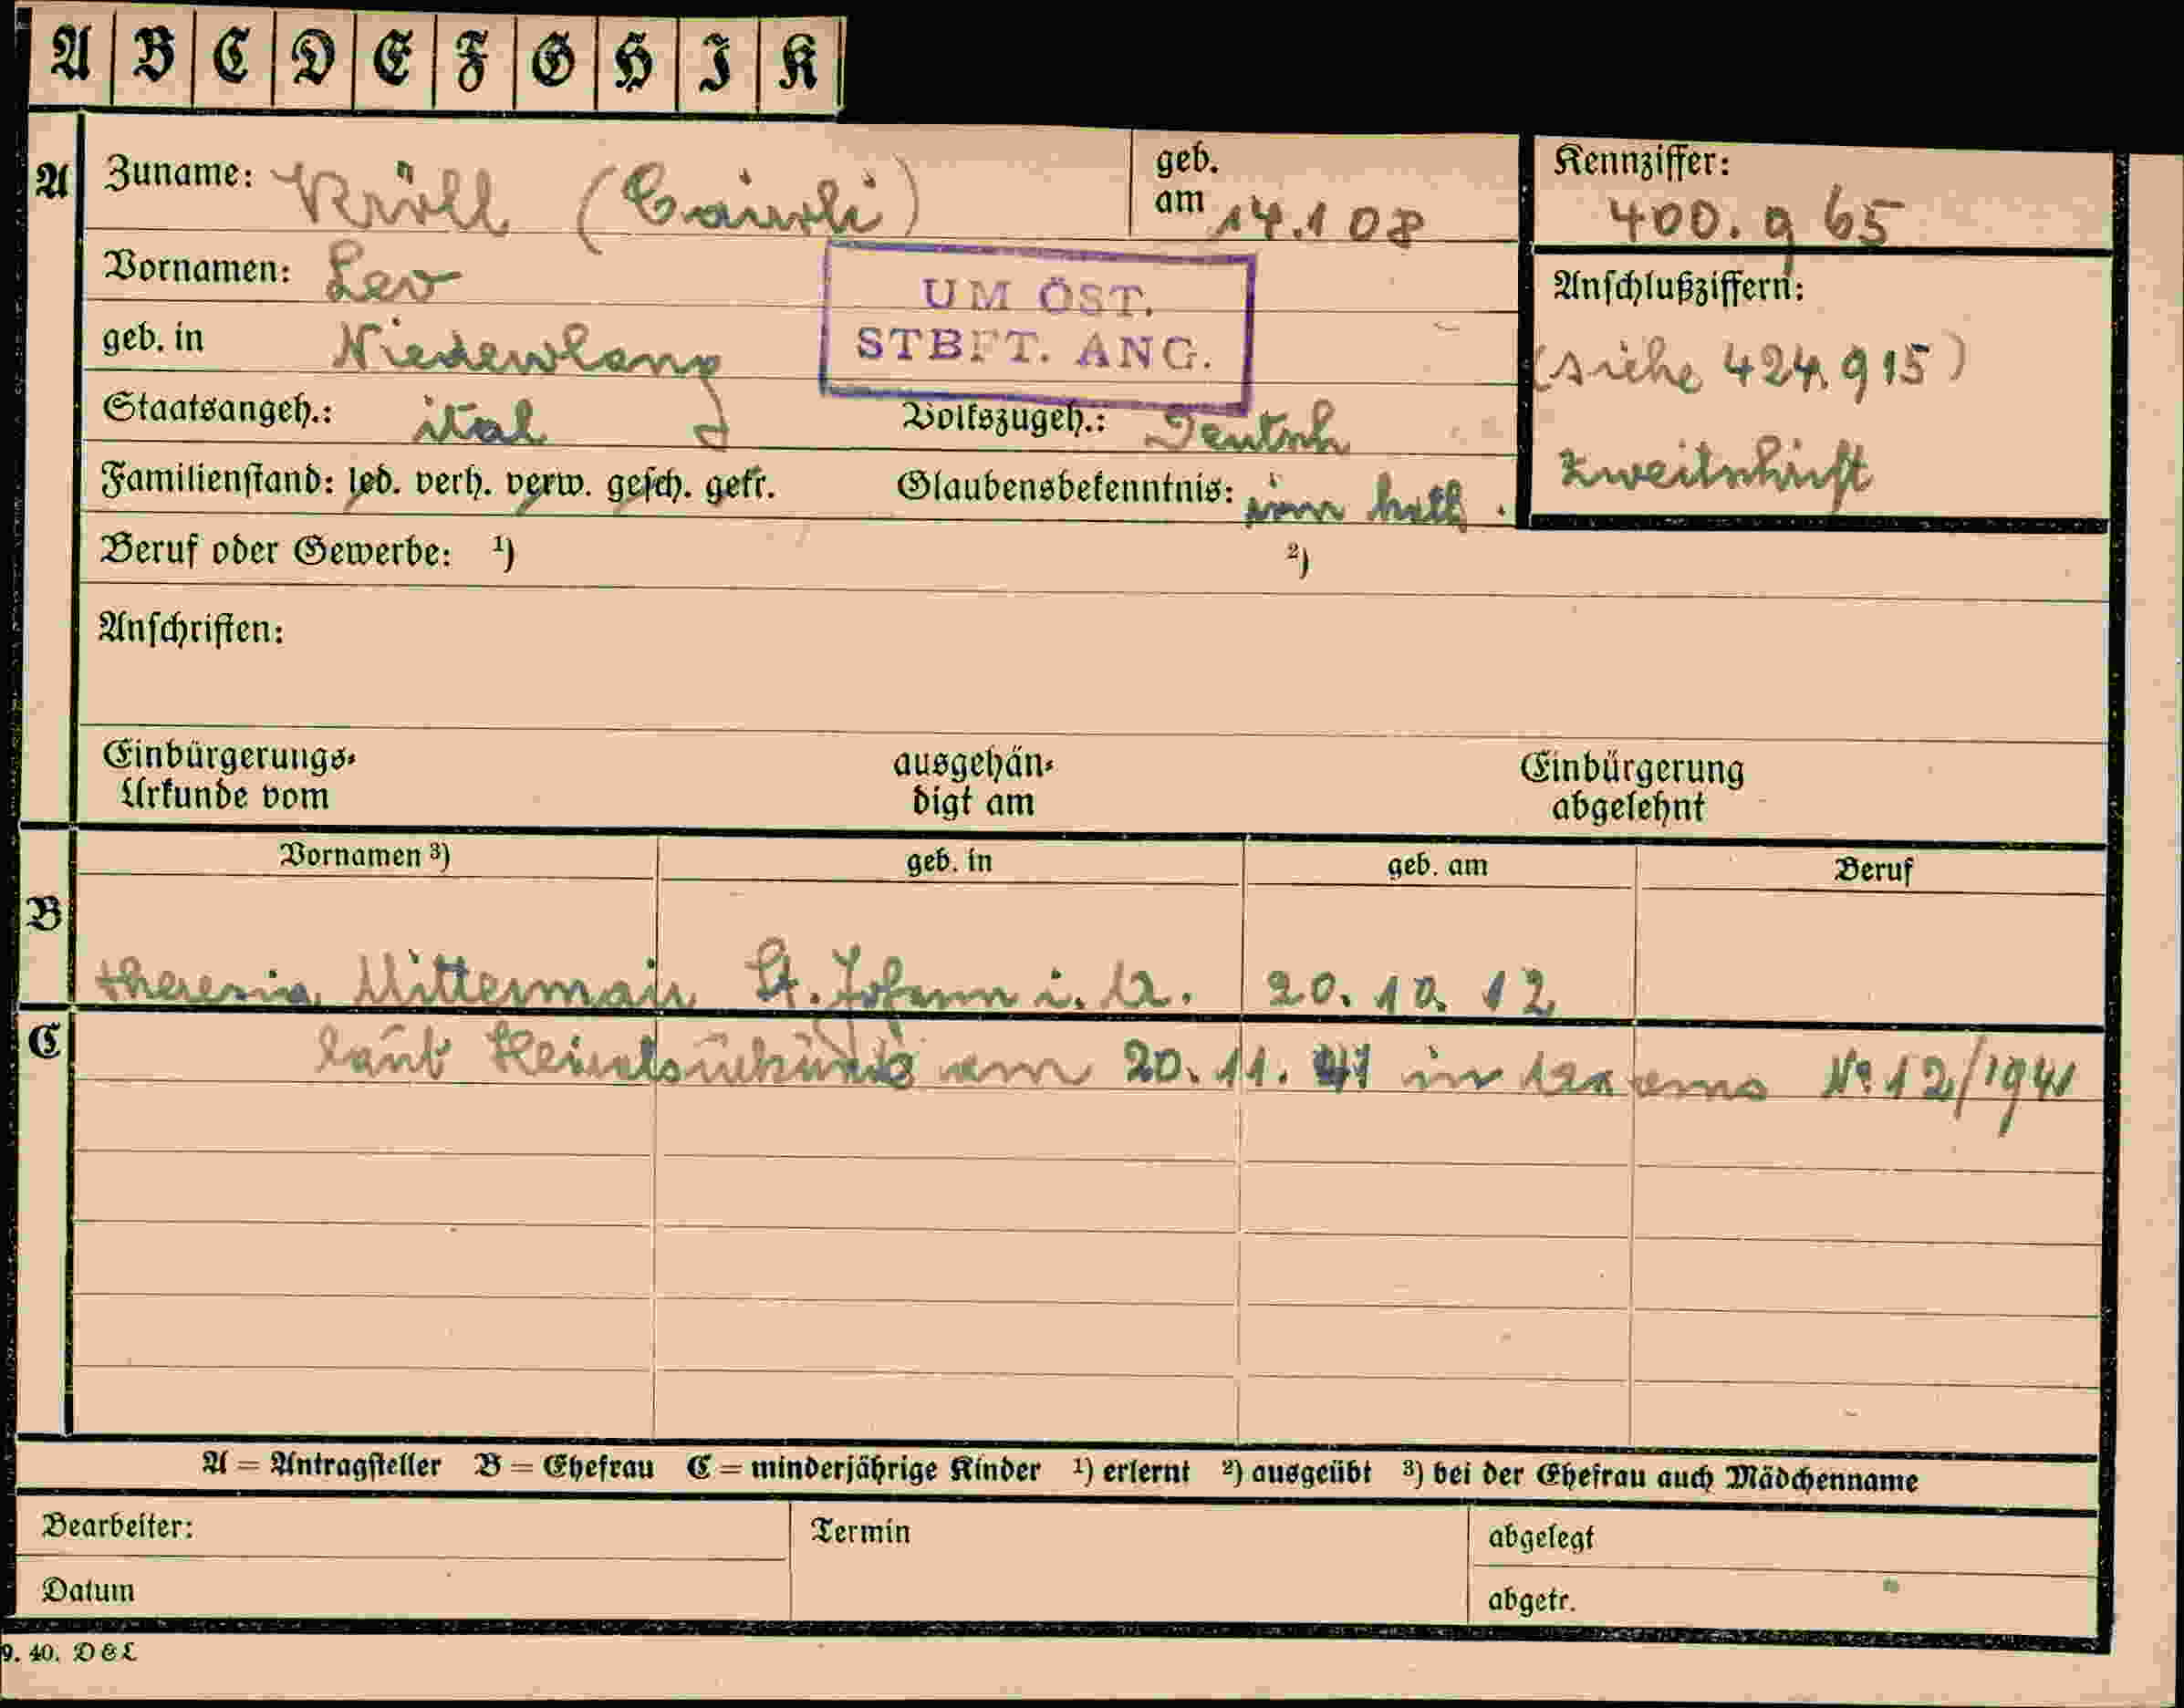 A B C D E F G H I K
A Zuname: Kröll
geb. am 14.1 08
Kennziffer: 400.965
Vornamen: Leo
UM ÖST.
STBFT. ANG.
Anschlußziffern:
geb. in
(siehe 424.915)
Staatsangeh.: ital
Volkszugeh.: Deutsch
Zweitschrift
Familienstand: led. verh. verw. gesch. getr.
Glaubensbekenntnis: röm kath.
Beruf oder Gewerbe: ¹) ²)
Anschriften:
Einbürgerungs-
Urkunde vom
ausgehän-
digt am
Einbürgerung
abgelehnt
Vornamen ³) geb. in geb. am Beruf
B
theresia Mittermair St. Johann i. 20. 10. 12
C
laut am 20. 11. 41 in No 12/1941
A = Antragsteller B = Ehefrau C = minderjährige Kinder ¹) erlernt ²) ausgeübt ³) bei der Ehefrau auch Mädchenname
Bearbeiter: Termin abgelegt
Datum abgetr.
9. 40. D & L